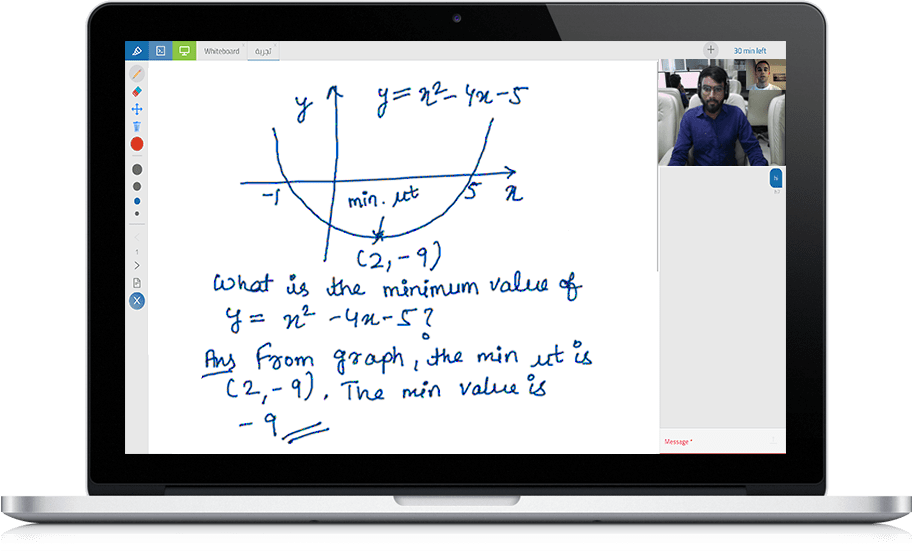 Whiteboard
تجربة
30 min left
y
y = x² - 4x - 5
-1
min. pt
5
x
(2, -9)
What is the minimum value of
y = x² - 4x - 5?
Ans From graph, the min pt is
(2, -9). The min value is
-9
1
Message *